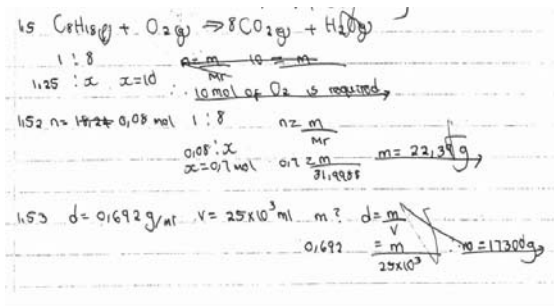 1.5 C8H18(l) + O2(g) ⇒ 8CO2(g) + H2O(g)
1 : 8 n = m/Mr 10 = m
1,25 : x x = 10 ∴ 10 mol of O2 is required
1.52 n = 0,08 mol 1 : 8 n = m/Mr
0,08 : x
x = 0,7 mol 0,7 = m/31,9988 m = 22,39 g
1.53 d = 0,692 g/ml v = 25x10³ ml m? d = m/v
0,692 = m/25x10³ m = 17300 g